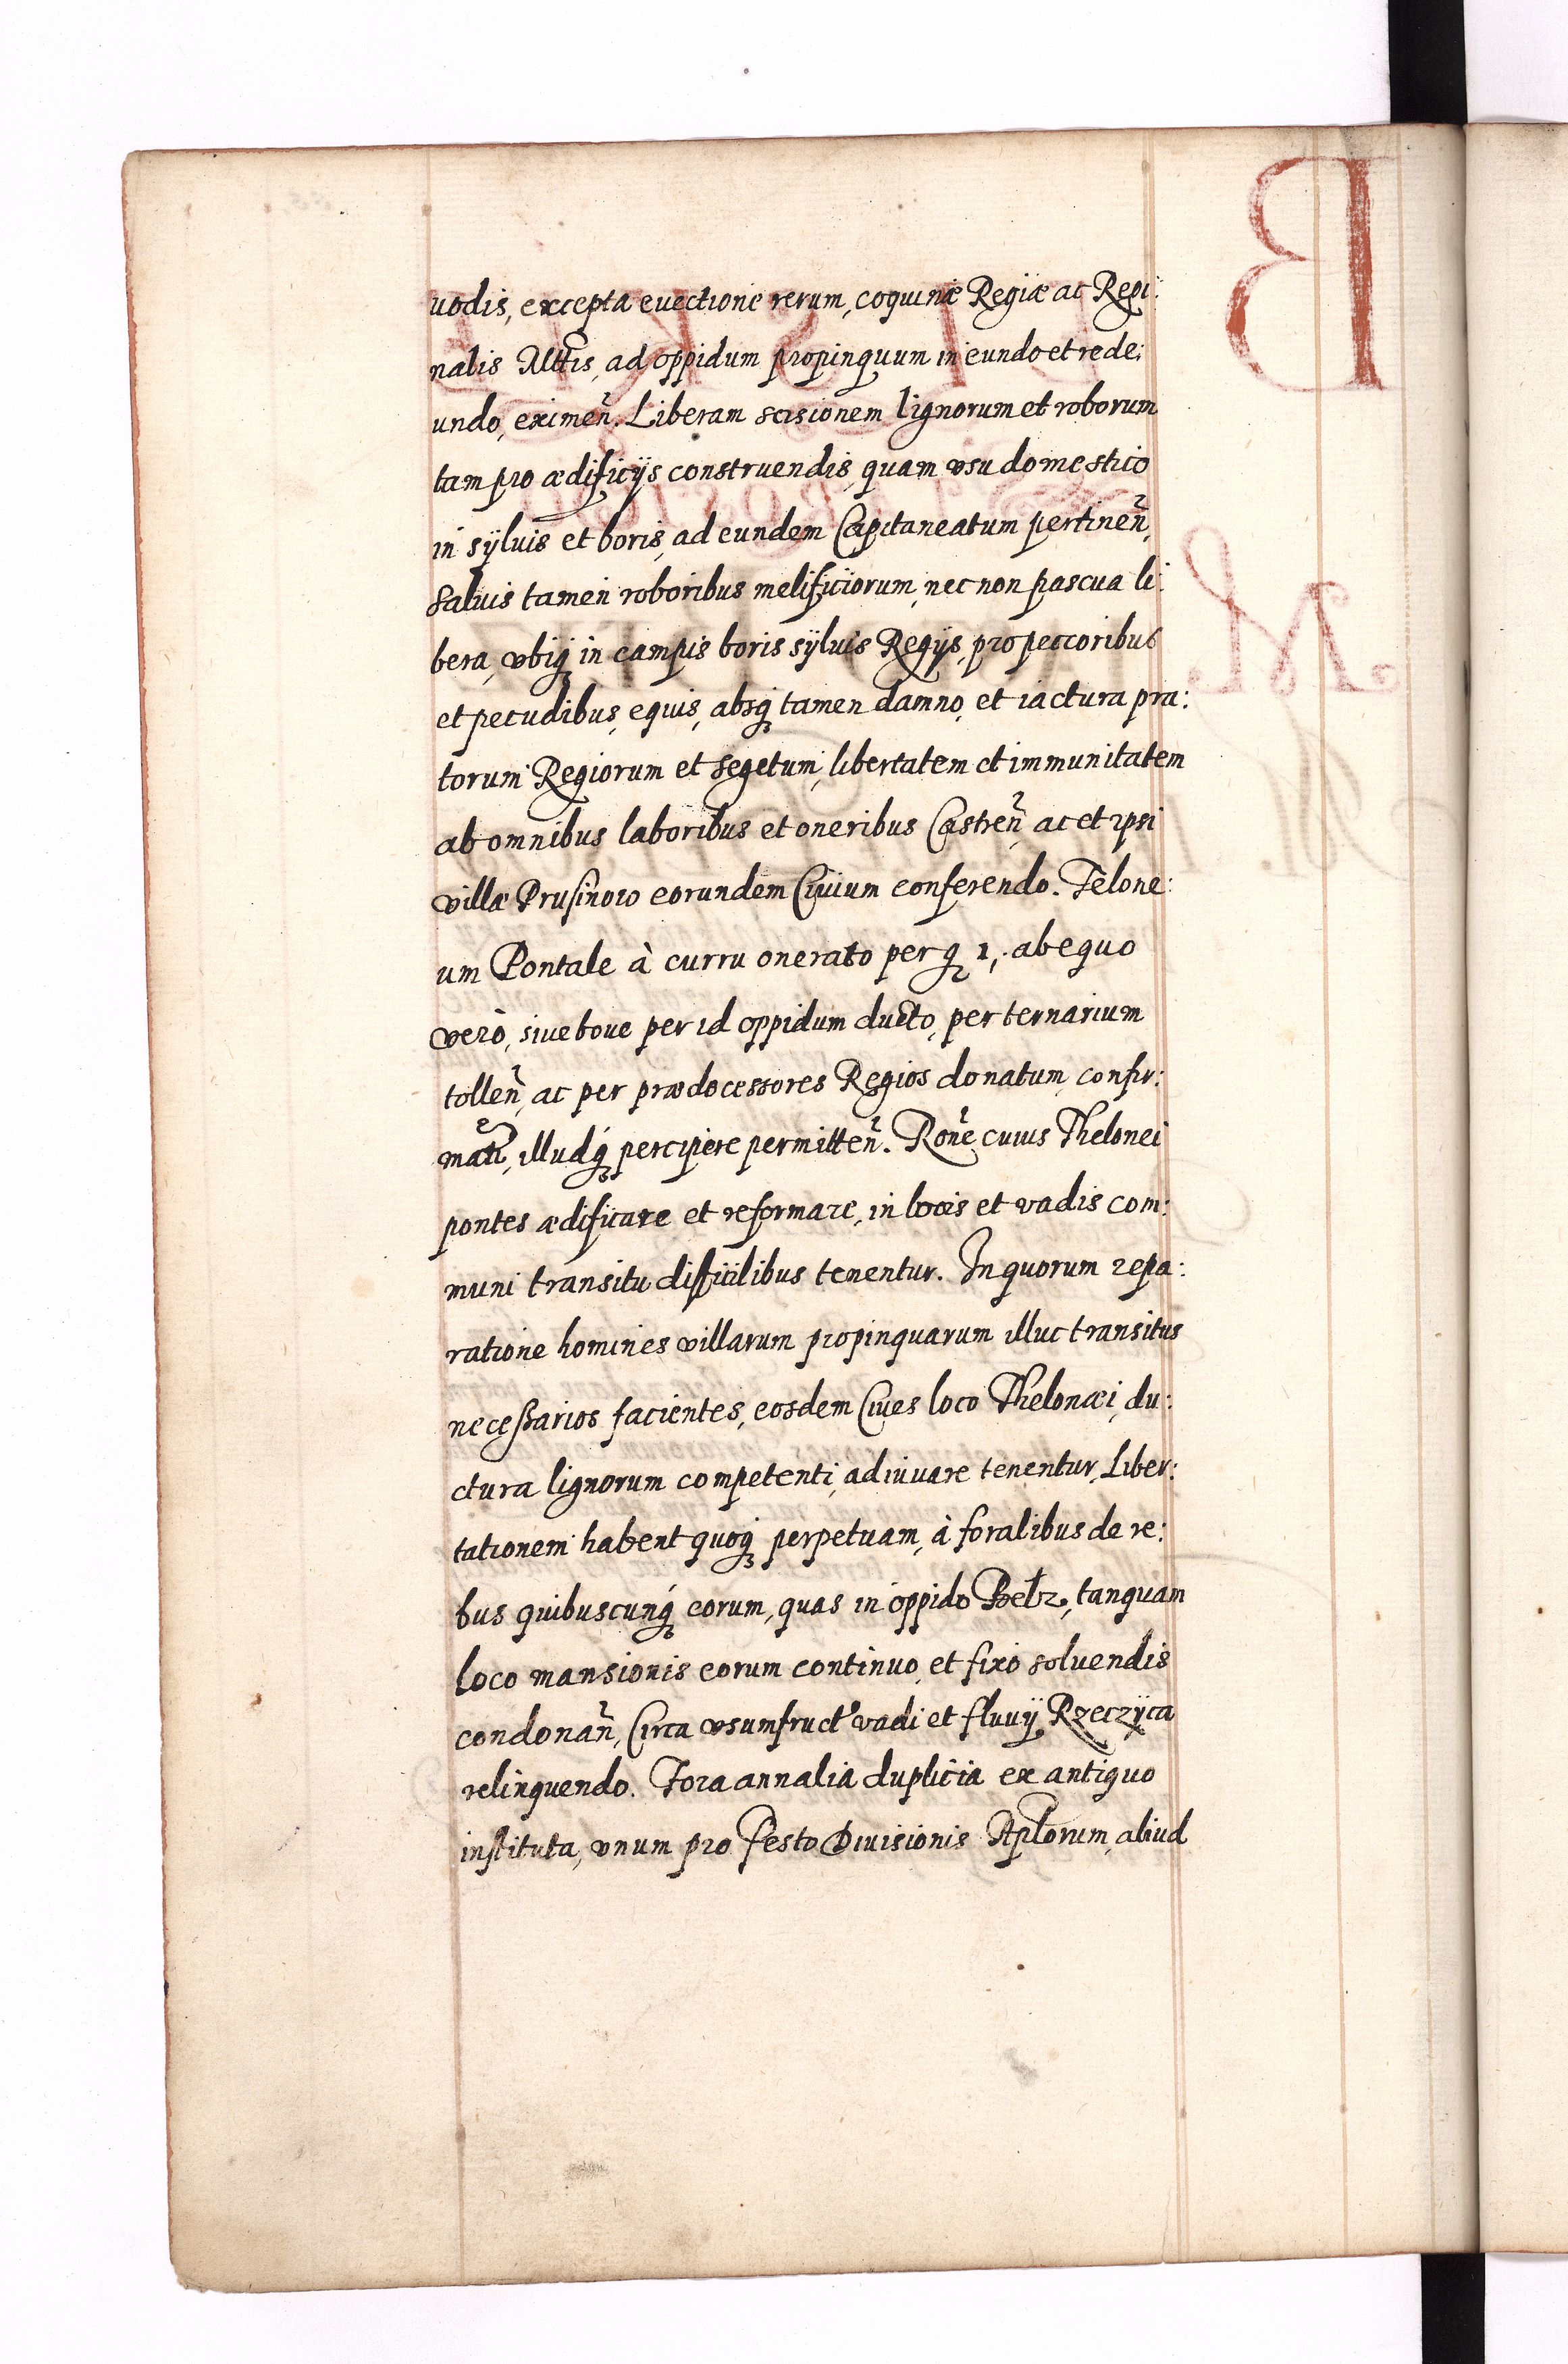 uodis, excepta euectione rerum, coquinæ Regiæ ac Regi:
nalis Mttis, ad oppidum propinquum in eundo et rede:
undo, eximeñ. Liberam scisionem lignorum et roborum
tam pro ædificijs construendis, quam vsu domestico
in syluis et boris, ad eundem Capitaneatum pertineñ,
saluis tamen roboribus melificiorum, nec non pascua li:
bera, vbiq́ꝫ in campis boris syluis Regijs, pro peccoribus
et pecudibus, equis, absq́ꝫ tamen damno, et iactura pra:
torum Regiorum et segetum, libertatem et immunitatem
ab omnibus laboribus et oneribus Castreñ, ac et ipsi
villæ Prusinow eorundem Ciuium conferendo. Telone:
um Pontale à curru onerato per gꝫ 1, ab equo
verò, siue boue per id oppidum ducto, per ternarium
tolleñ, ac per prædocessores Regios donatum, confir:
matũ, illudq́ꝫ percipere permitteñ. Roñe cuius Thelonei
pontes ædificare et reformare, in locis et vadis com:
muni transitu difficilibus tenentur. In quorum repa:
ratione homines villarum propinquarum illuc transitus
neceßarios facientes, eosdem Ciues loco Thelonæi, du:
ctura lignorum competenti, adiuuare tenentur, Liber:
tationem habent quoq́ꝫ perpetuam, à foralibus de re:
bus quibuscunq́ꝫ eorum, quas in oppido Bełz, tanquam
loco mansionis eorum continuo, et fixo soluendis
condonañ, Circa vsumfruct' vadi et fluuij Rzeczyca
relinquendo. Fora annalia duplicia ex antiquo
instituta, vnum pro festo Diuisionis Aplorum, aliud